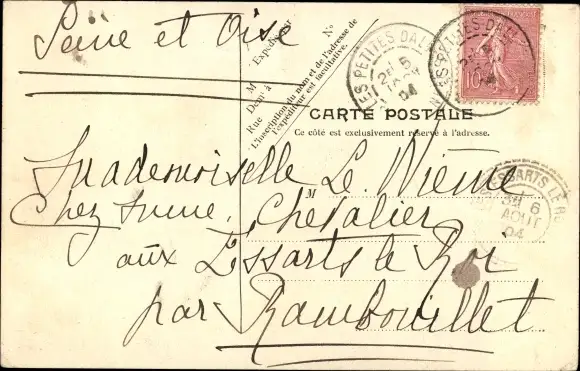 Seine et Oise
M
Expéditeur
Demt à
Rue
No
L'inscription du nom et de l'adresse de
l'expéditeur est facultative.
LES PETITES DAL
5
04
LES PETITES DAL
04
10
CARTE POSTALE
Ce côté est exclusivement réservé à l'adresse.
Mademoiselle Le
M
Chez Mme Chevalier
aux Essarts le Roi
par Rambouillet
ESSARTS LE R
3E 6
AOUT
04